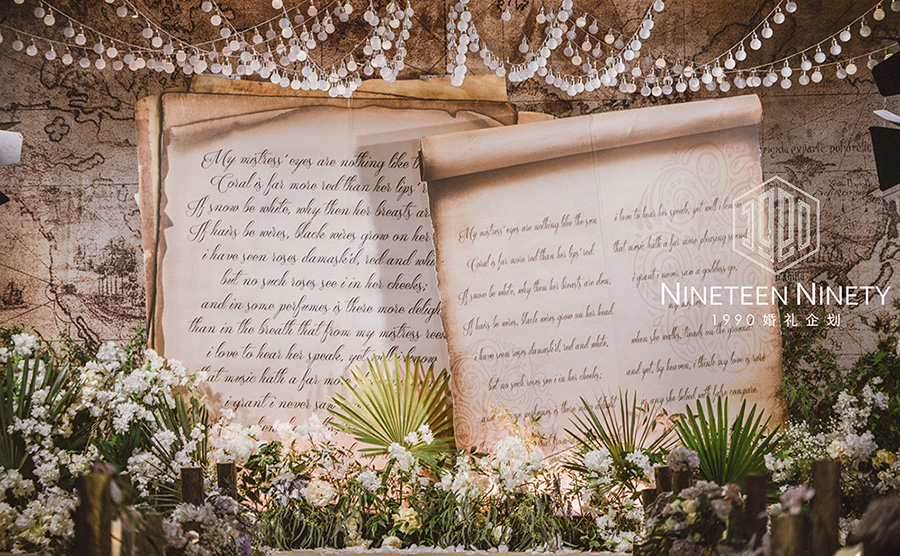 My mistress' eyes are nothing like t
Coral is far more red than her lips'
If snow be white, why then her breasts are
If hairs be wires, black wires grow on her
i have seen roses damask'd, red and whi
but no such roses see i in her cheeks;
and in some perfumes is there more deligh
than in the breath that from my mistress ree
i love to hear her speak, yet well i know
that music hath a far mo
i grant i never saw
My mistress' eyes are nothing like the sun
Coral is far more red than her lips' red:
If snow be white, why then her breasts are dun;
If hairs be wires, black wires grow on her head.
i have seen roses damask'd, red and white,
but no such roses see i in her cheeks;
and in some perfumes is there more delight
i love to hear her speak, yet well i know
that music hath a far more pleasing sound
i grant i never saw a goddess go,
when she walks, treads on the ground:
and yet, by heaven, i think my love as rare
as any she belied with false compare.
1990
NINETEEN NINETY
1990婚礼企划